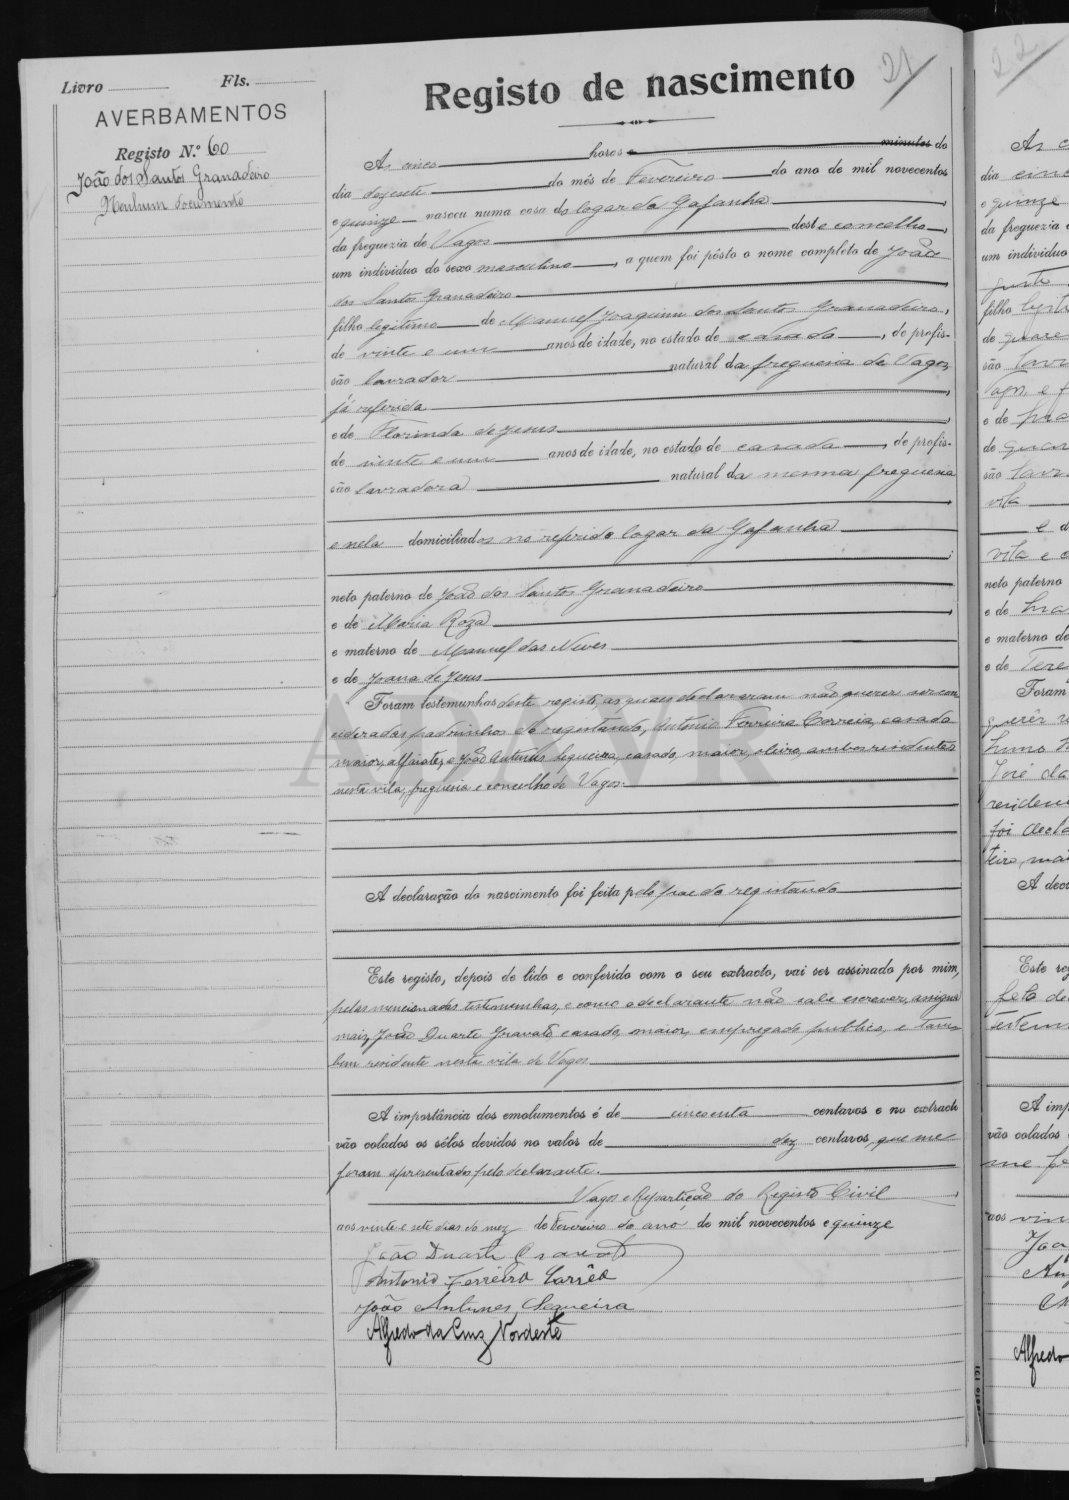 Livro Fls.
AVERBAMENTOS
Registo N.º 60
João dos Santos Granadeiro
Nenhum documento
21
Registo de nascimento
Às cinco horas e minutos do
dia dezesete do mês de Fevereiro do ano de mil novecentos
e quinze nasceu numa casa do logar da Gafanha,
da freguezia de Vagos deste concelho,
um individuo do sexo masculino, a quem foi pôsto o nome completo de João
dos Santos Granadeiro,
filho legitimo de Manuel Joaquim dos Santos Granadeiro,
de vinte e um anos de idade, no estado de casado, de profis-
são lavrador natural da freguesia de Vagos,
já referida,
e de Florinda de Jesus,
de vinte e um anos de idade, no estado de casada, de profis-
são lavradora natural da mesma freguesia
,
e nela domiciliados no referido logar da Gafanha
;
neto paterno de João dos Santos Granadeiro
e de Maria Roza,
e materno de Manuel das Neves
e de Joana de Jesus
Foram testemunhas deste registo, as quaes declararam não querer ser con
sideradas padrinhos do registando, Antonio Ferreira Correia, casado
maior, alfaiate, e João Antunes Sequeira, casado, maior, oleiro, ambos residentes
nesta vila, freguesia e concelho de Vagos.
A declaração do nascimento foi feita pelo pae do registando
Este registo, depois de lido e conferido com o seu extracto, vai ser assinado por mim,
pelas mencionadas testemunhas, e como o declarante não sabe escrever, assigna
mais, João Duarte Gravato, casado, maior, empregado publico, e tam-
bem residente nesta vila de Vagos
A importância dos emolumentos é de cincoenta centavos e no extracto
vão colados os sêlos devidos no valor de dez centavos, que me
foram apresentados pelo declarante.
Vagos e Repartição do Registo Civil,
aos vinte e sete dias do mez de Fevereiro do ano de mil novecentos e quinze
João Duarte Gravato
Antonio Ferreira Corrêa
João Antunes Sequeira
Alfredo da Cruz Nordeste
ADAVR
22